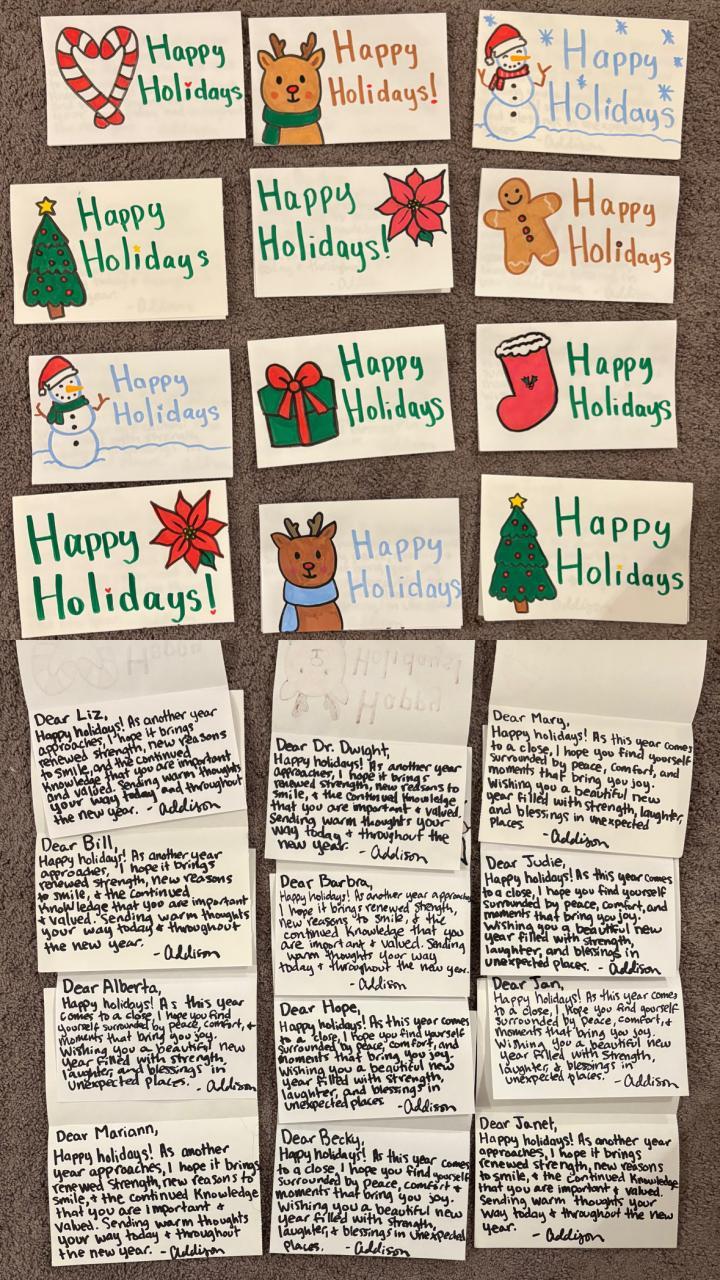 Happy
Holidays
Happy
Holidays!
Happy
Holidays
Happy
Holidays
Happy
Holidays!
Happy
Holidays
Happy
Holidays
Happy
Holidays
Happy
Holidays
Happy
Holidays!
Happy
Holidays
Happy
Holidays
Dear Liz,
Happy holidays! As another year
approaches, I hope it brings
renewed strength, new reasons
to smile, and the continued
knowledge that you are important
and valued. Sending warm thoughts
your way today and throughout
the new year. - Addison
Dear Dr. Dwight,
Happy holidays! As another year
approaches, I hope it brings
renewed strength, new reasons to
smile, & the continued knowledge
that you are important & valued.
Sending warm thoughts your
way today & throughout the
new year. - Addison
Dear Mary,
Happy holidays! As this year comes
to a close, I hope you find yourself
surrounded by peace, comfort, and
moments that bring you joy.
Wishing you a beautiful new
year filled with strength, laughter,
and blessings in unexpected
places. - Addison
Dear Bill,
Happy holidays! As another year
approaches, I hope it brings
renewed strength, new reasons
to smile, & the continued
knowledge that you are important
& valued. Sending warm thoughts
your way today & throughout
the new year. - Addison
Dear Barbra,
Happy holidays! As another year approaches
I hope it brings renewed strength,
new reasons to smile, & the
continued knowledge that you
are important & valued. Sending
warm thoughts your way
today & throughout the new year.
- Addison
Dear Judie,
Happy holidays! As this year comes
to a close, I hope you find yourself
surrounded by peace, comfort, and
moments that bring you joy.
Wishing you a beautiful new
year filled with strength,
laughter, and blessings in
unexpected places. - Addison
Dear Alberta,
Happy holidays! As this year
comes to a close, I hope you find
yourself surrounded by peace, comfort, &
moments that bring you joy.
Wishing you a beautiful new
year filled with strength,
laughter, and blessings in
unexpected places. - Addison
Dear Hope,
Happy holidays! As this year comes
to a close, I hope you find yourself
surrounded by peace, comfort, and
moments that bring you joy.
Wishing you a beautiful new
year filled with strength,
laughter, and blessings in
unexpected places. - Addison
Dear Jan,
Happy holidays! As this year comes
to a close, I hope you find yourself
surrounded by peace, comfort, &
moments that bring you joy.
Wishing you a beautiful new
year filled with strength,
laughter, & blessings in
unexpected places. - Addison
Dear Mariann,
Happy holidays! As another
year approaches, I hope it brings
renewed strength, new reasons to
smile, & the continued knowledge
that you are important &
valued. Sending warm thoughts
your way today & throughout
the new year. - Addison
Dear Becky,
Happy holidays! As this year comes
to a close, I hope you find yourself
surrounded by peace, comfort &
moments that bring you joy.
Wishing you a beautiful new
year filled with strength,
laughter, & blessings in unexpected
places. - Addison
Dear Janet,
Happy holidays! As another year
approaches, I hope it brings
renewed strength, new reasons
to smile, & the continued knowledge
that you are important & valued.
Sending warm thoughts your
way today & throughout the new
year. - Addison